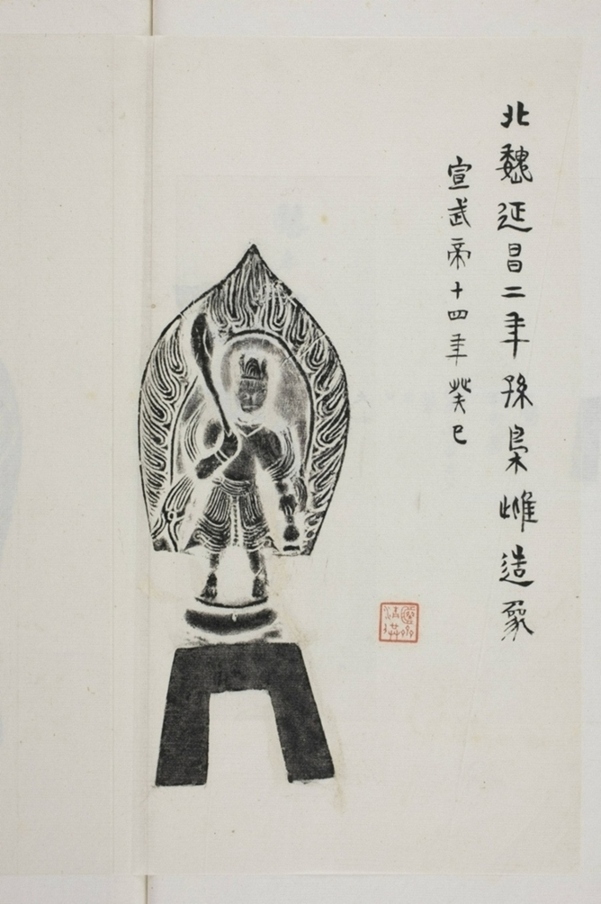 北魏延昌二年孫梟惟造象
宣武帝十四年癸巳